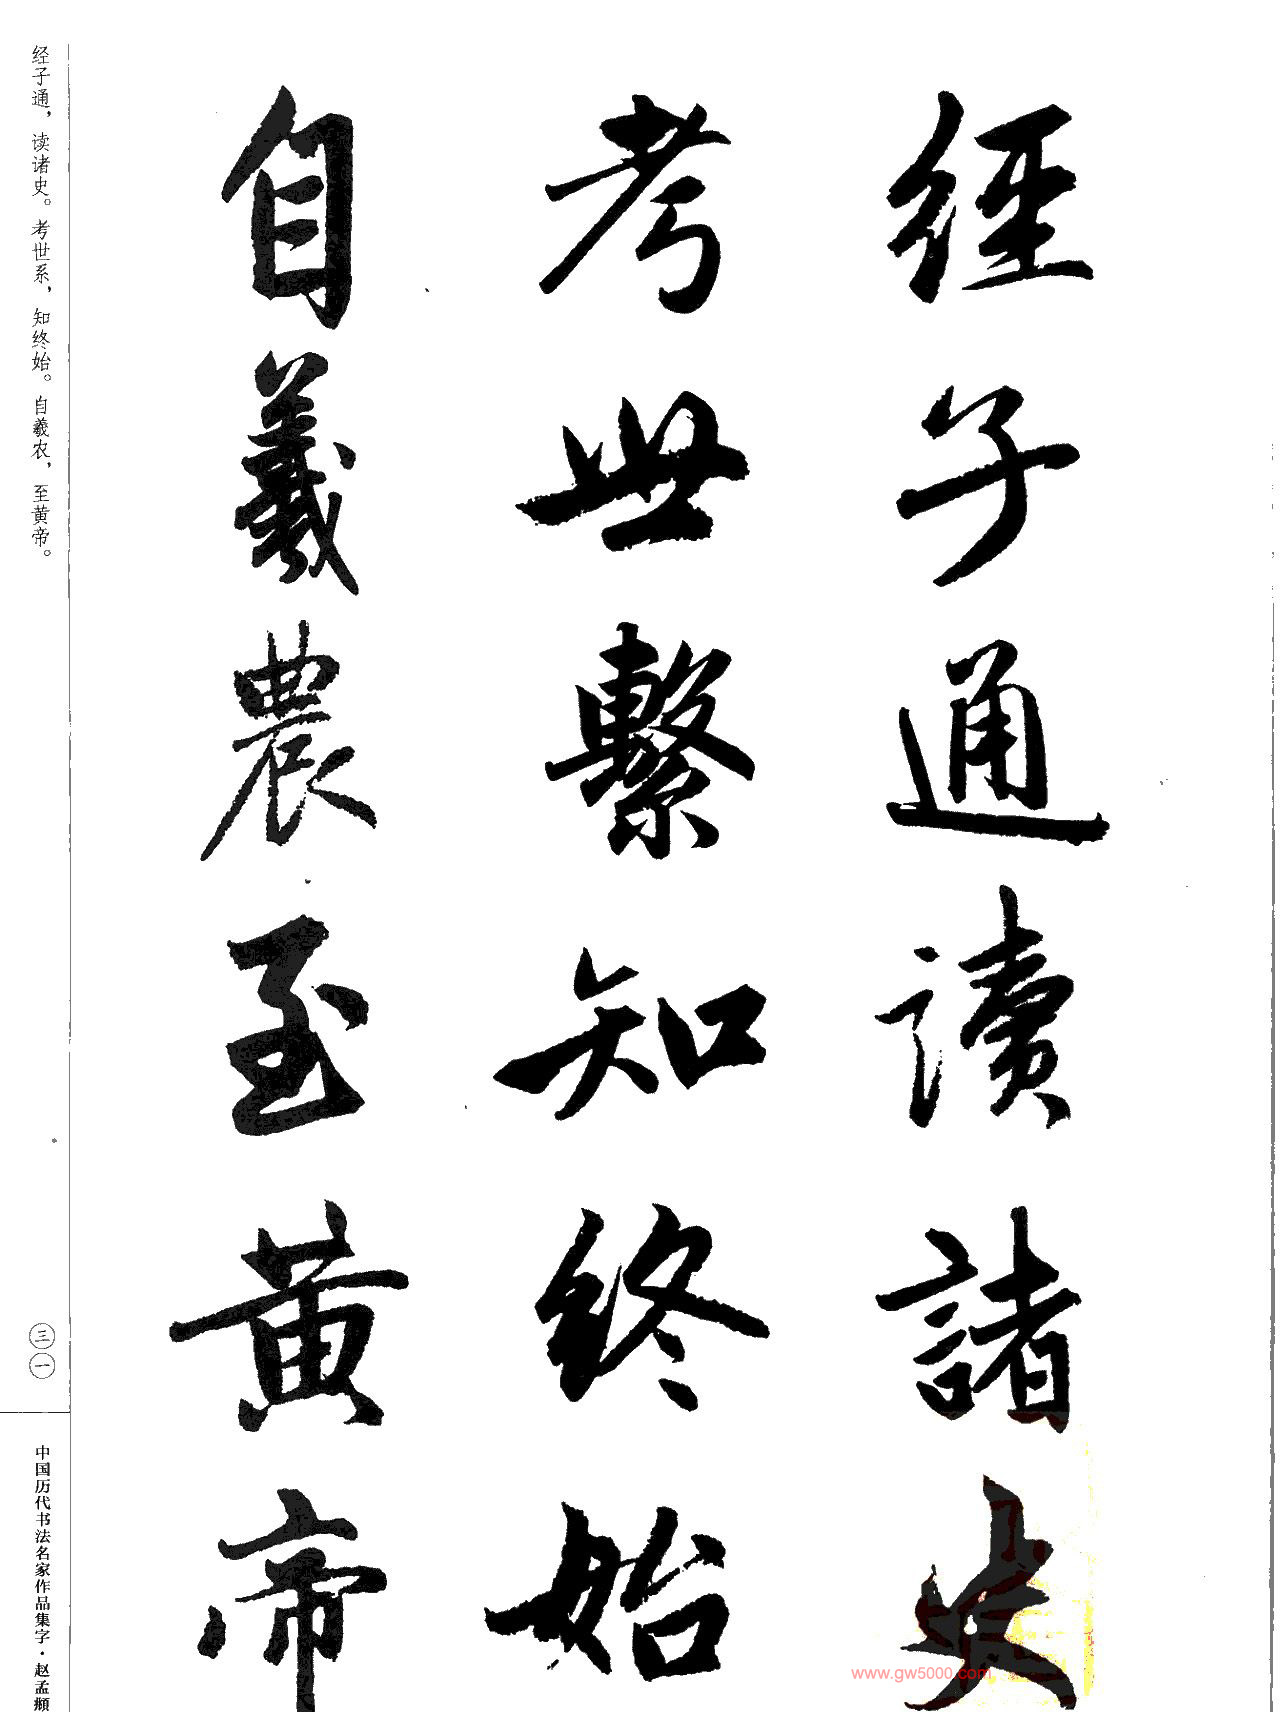 經子通讀諸史
考世繫知終始
自羲農至黄帝
经子通，读诸史。考世系，知终始。自羲农，至黄帝。
三一
中国历代书法名家作品集字·赵孟頫
www.gw5000.com